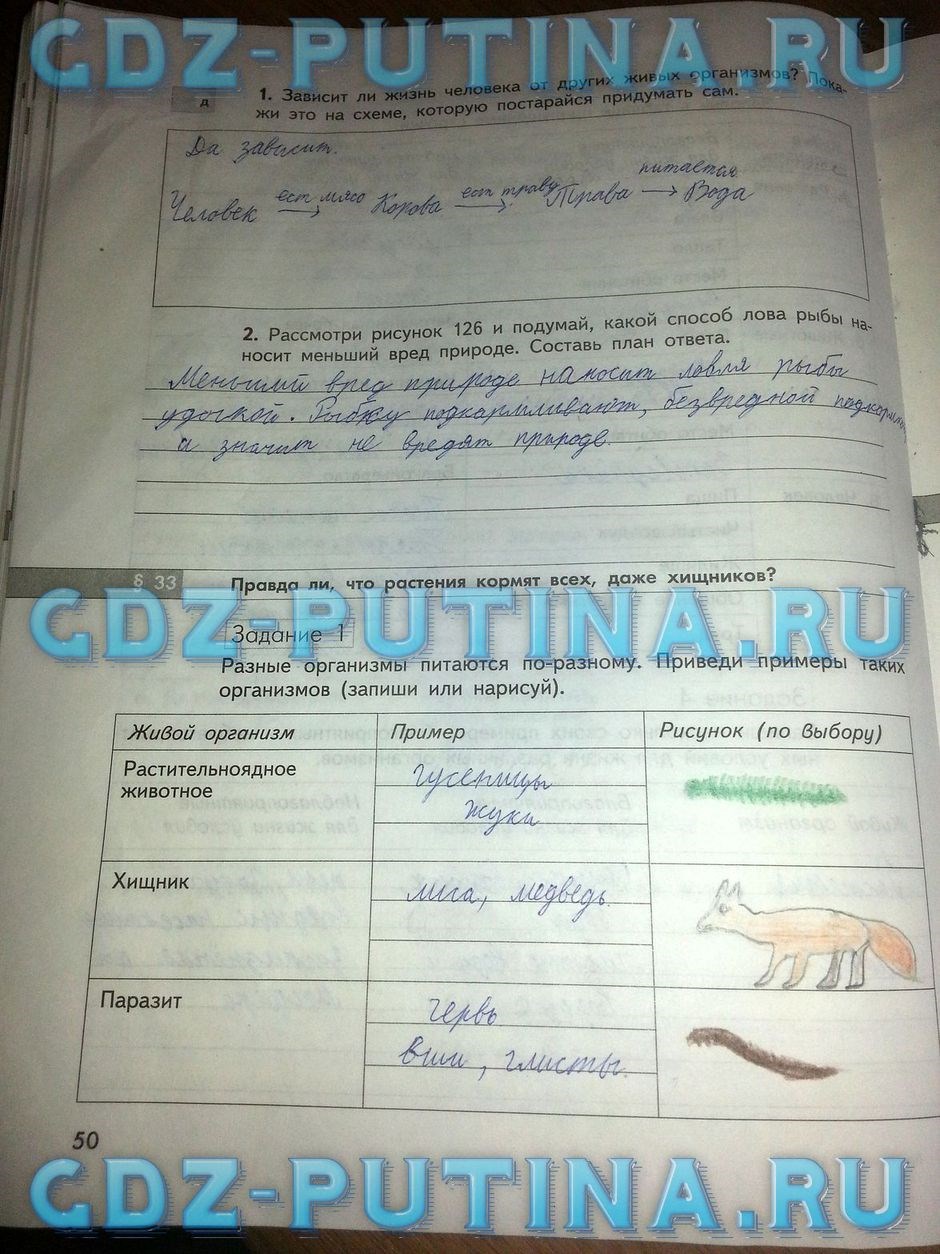 GDZ-PUTINA.RU
д
1. Зависит ли жизнь человека от других живых организмов? Пока-
жи это на схеме, которую постарайся придумать сам.
Да зависит.
Человек ест мясо → Корова ест траву → Трава питается → Вода
2. Рассмотри рисунок 126 и подумай, какой способ лова рыбы на-
носит меньший вред природе. Составь план ответа.
Меньший вред природе наносит ловля рыбы
удочкой. Рыбку подкармливают, безвредной
а значит не вредят природе.
§ 33 Правда ли, что растения кормят всех, даже хищников?
GDZ-PUTINA.RU
Задание 1
Разные организмы питаются по-разному. Приведи примеры таких
организмов (запиши или нарисуй).
Живой организм Пример Рисунок (по выбору)
Растительноядное гусеницы
животное жуки
Хищник лиса, медведь
Паразит червь
вши, глисты.
50
GDZ-PUTINA.RU